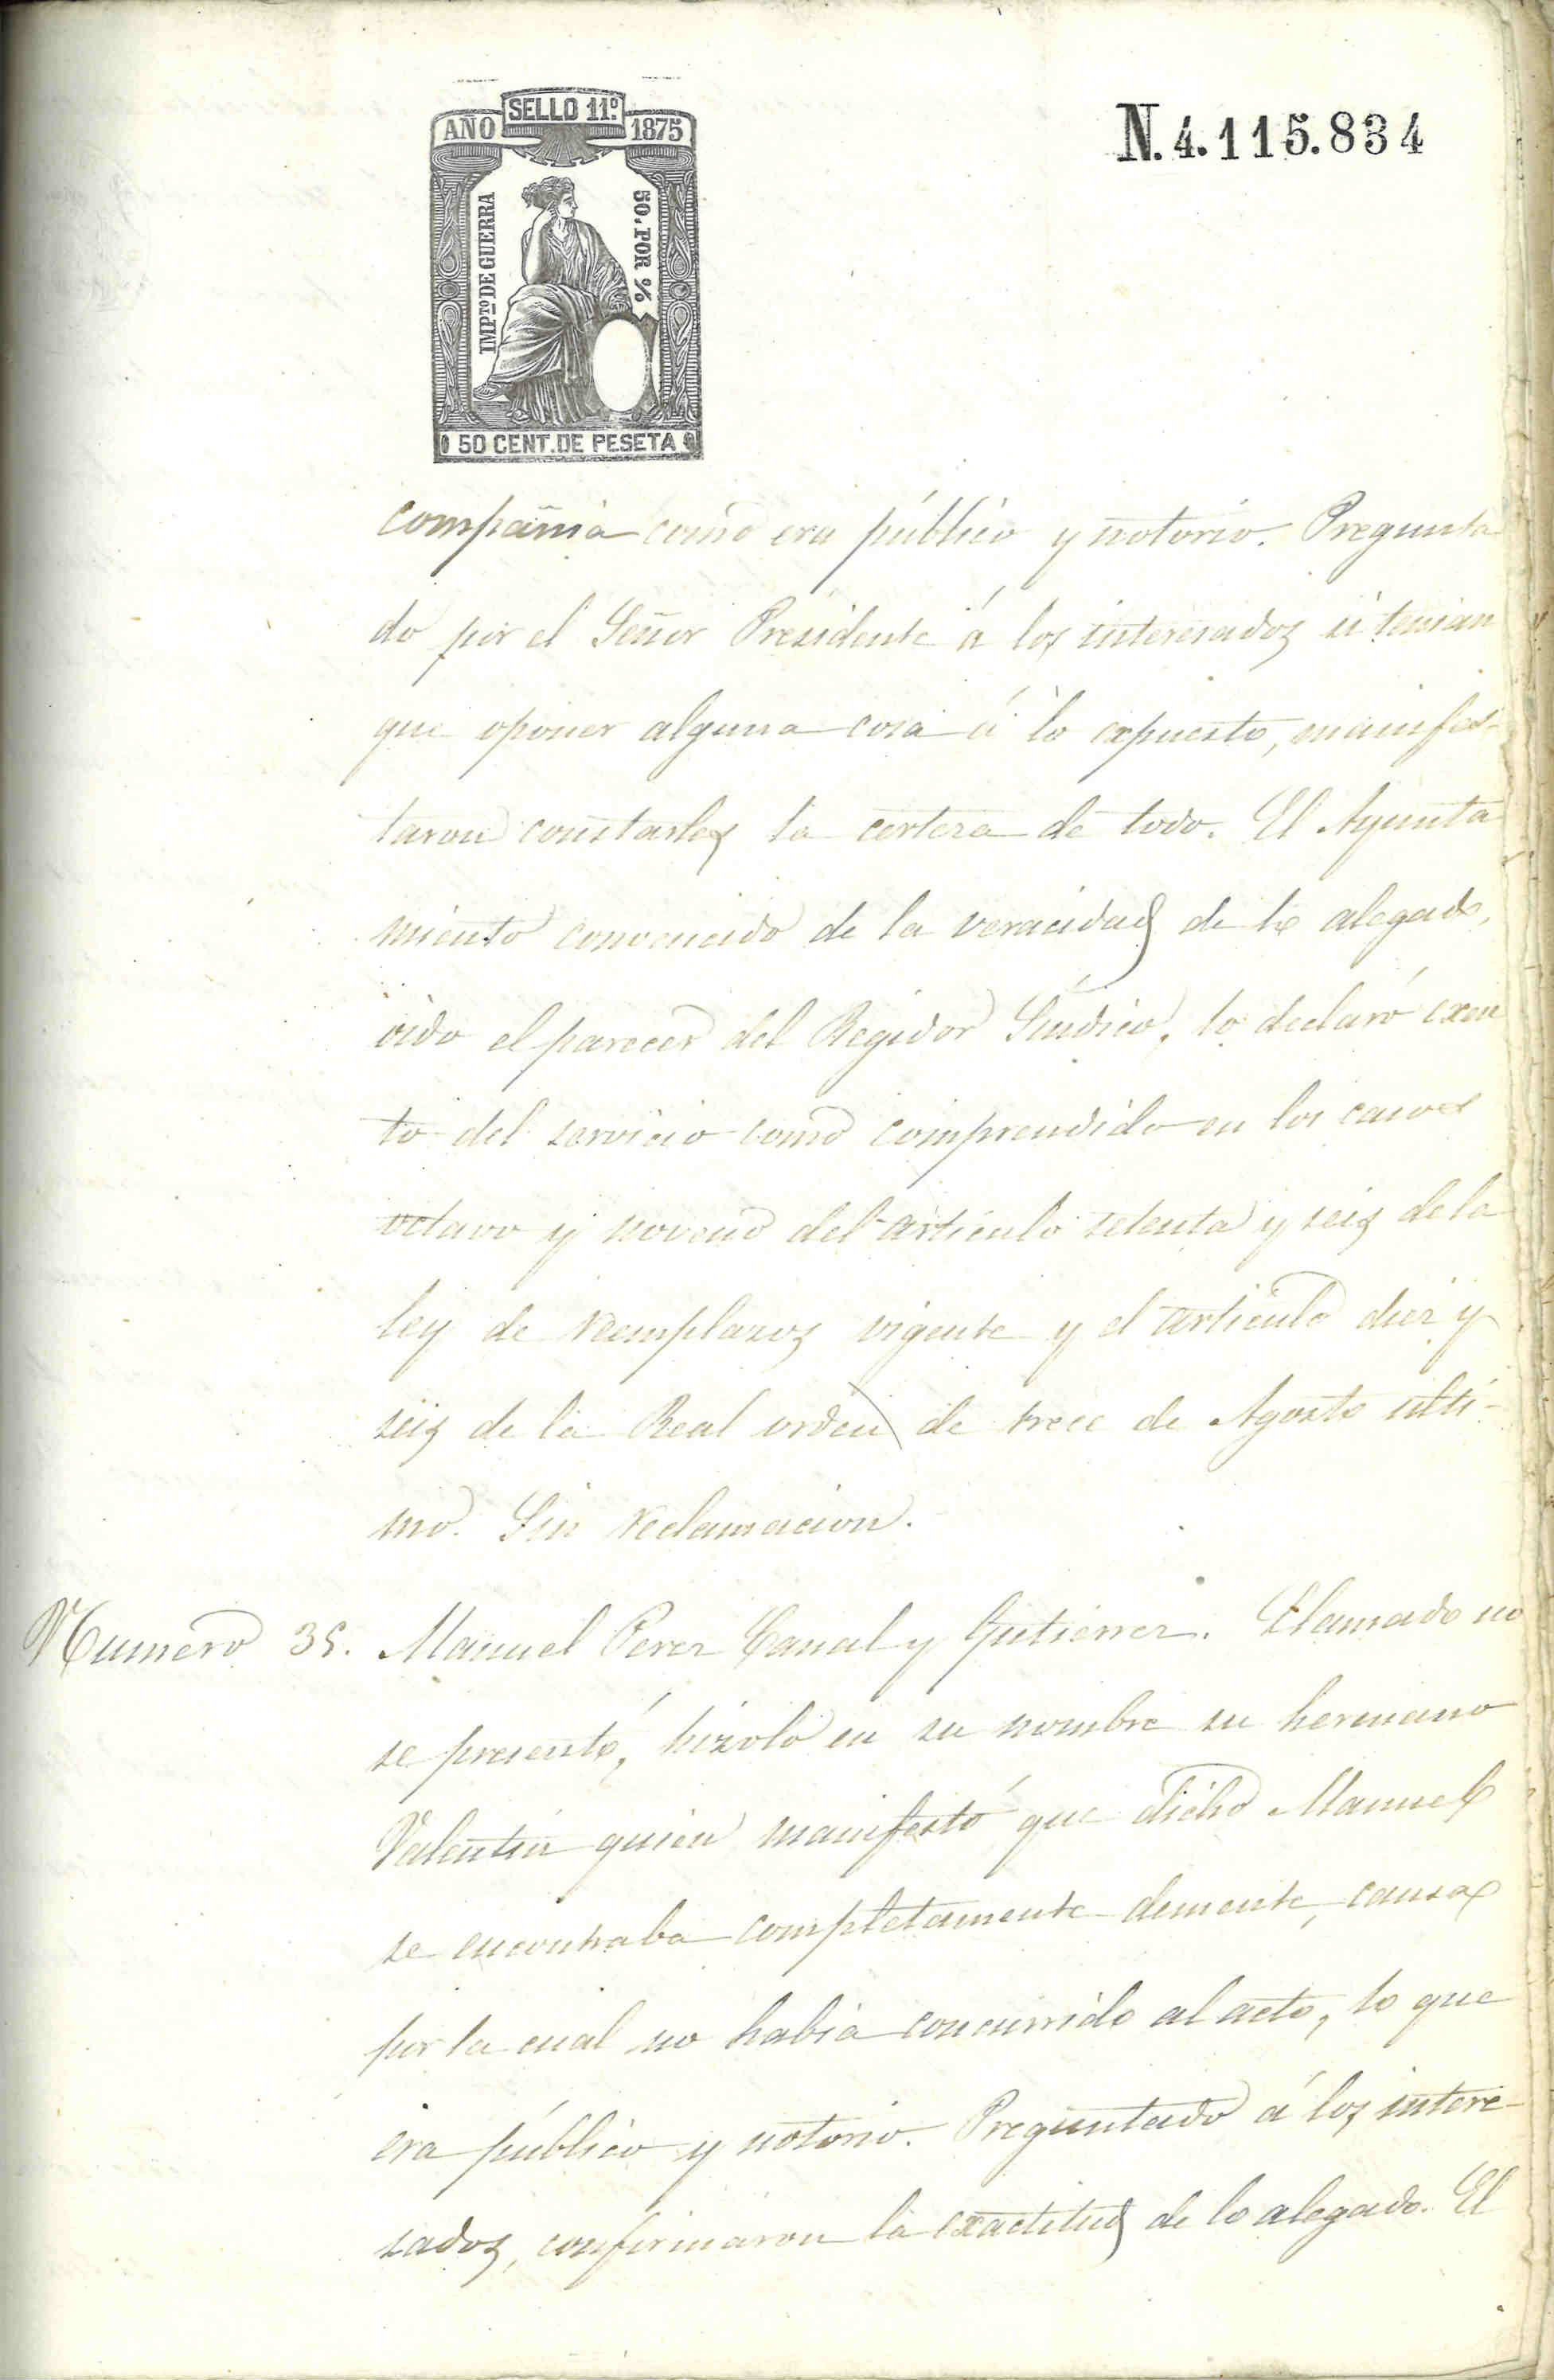 AÑO SELLO 11º 1875
IMPTO DE GUERRA
50. POR %
50 CENT. DE PESETA
N. 4.115.834
compañia como era público y notorio. Pregunta-
do por el Señor Presidente á los interesados si tenian
que oponer alguna cosa á lo expuesto, manifes-
taron constarles la certeza de todo. El Ayunta
miento convencido de la veracidad de lo alegado,
oido el parecer del Regidor Síndico, lo declaró exen
to del servicio como comprendido en los casos
octavo y noveno del artículo setenta y seis de la
ley de reemplazos vigente y el artículo diez y
seis de la Real orden de trece de Agosto ulti-
mo. Sin reclamacion.
Numero 35. Manuel Perez Canal y Gutierrez. Llamado no
se presentó, hizolo en su nombre su hermano
Valentin quien manifestó que dicho Manuel
se encontraba completamente demente, causa
por la cual no habia concurrido al acto, lo que
era público y notorio. Preguntado á los intere-
sados, confirmaron la exactitud de lo alegado. El